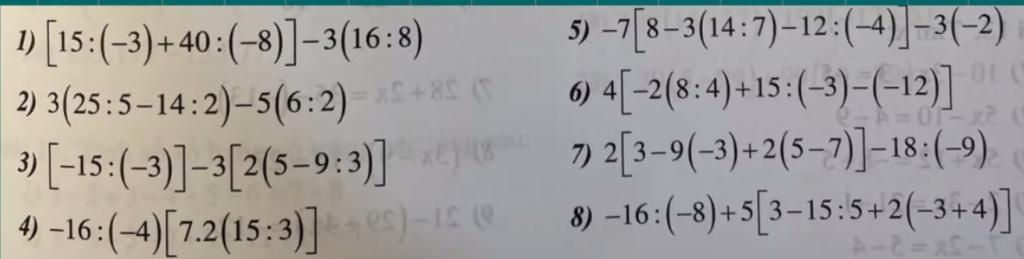 1) [15:(−3)+40:(−8)]−3(16:8)
2) 3(25:5−14:2)−5(6:2)
3) [−15:(−3)]−3[2(5−9:3)]
4) −16:(−4)[7.2(15:3)]
5) −7[8−3(14:7)−12:(−4)]−3(−2)
6) 4[−2(8:4)+15:(−3)−(−12)]
7) 2[3−9(−3)+2(5−7)]−18:(−9)
8) −16:(−8)+5[3−15:5+2(−3+4)]